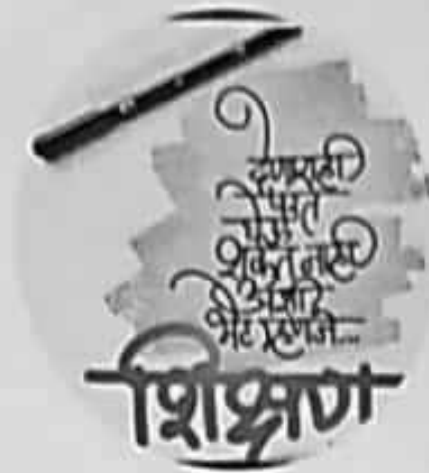 देणाराही
परत
घेऊ
शकत नाही
अशी
भेट म्हणजे...
शिक्षण